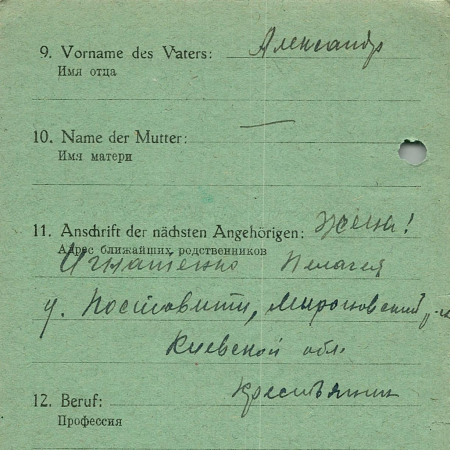 9. Vorname des Vaters: Александр
Имя отца
10. Name der Mutter: —
Имя матери
11. Anschrift der nächsten Angehörigen: жена!
Адрес ближайших родственников
Игнатенко Пелагея
Киевской обл.
12. Beruf: крестьянин
Профессия